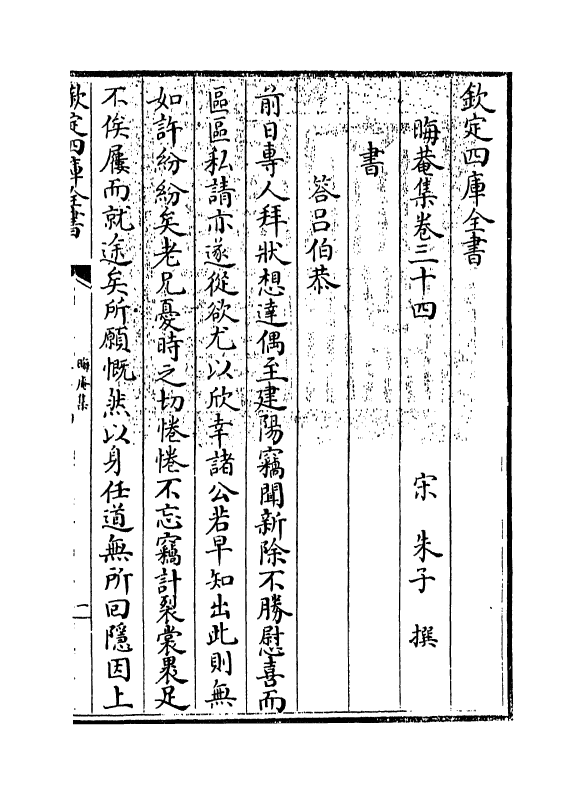 欽定四庫全書
晦菴集卷三十四
宋 朱子 撰
書
答呂伯恭
前日專人拜狀想達偶至建陽竊聞新除不勝慰喜而
區區私請亦遂從欲尤以欣幸諸公若早知出此則無
如許紛紛矣老兄憂時之切惓惓不忘竊計裂裳裹足
不俟屨而就途矣所願慨然以身任道無所回隱因上
欽定四庫全書
晦庵集